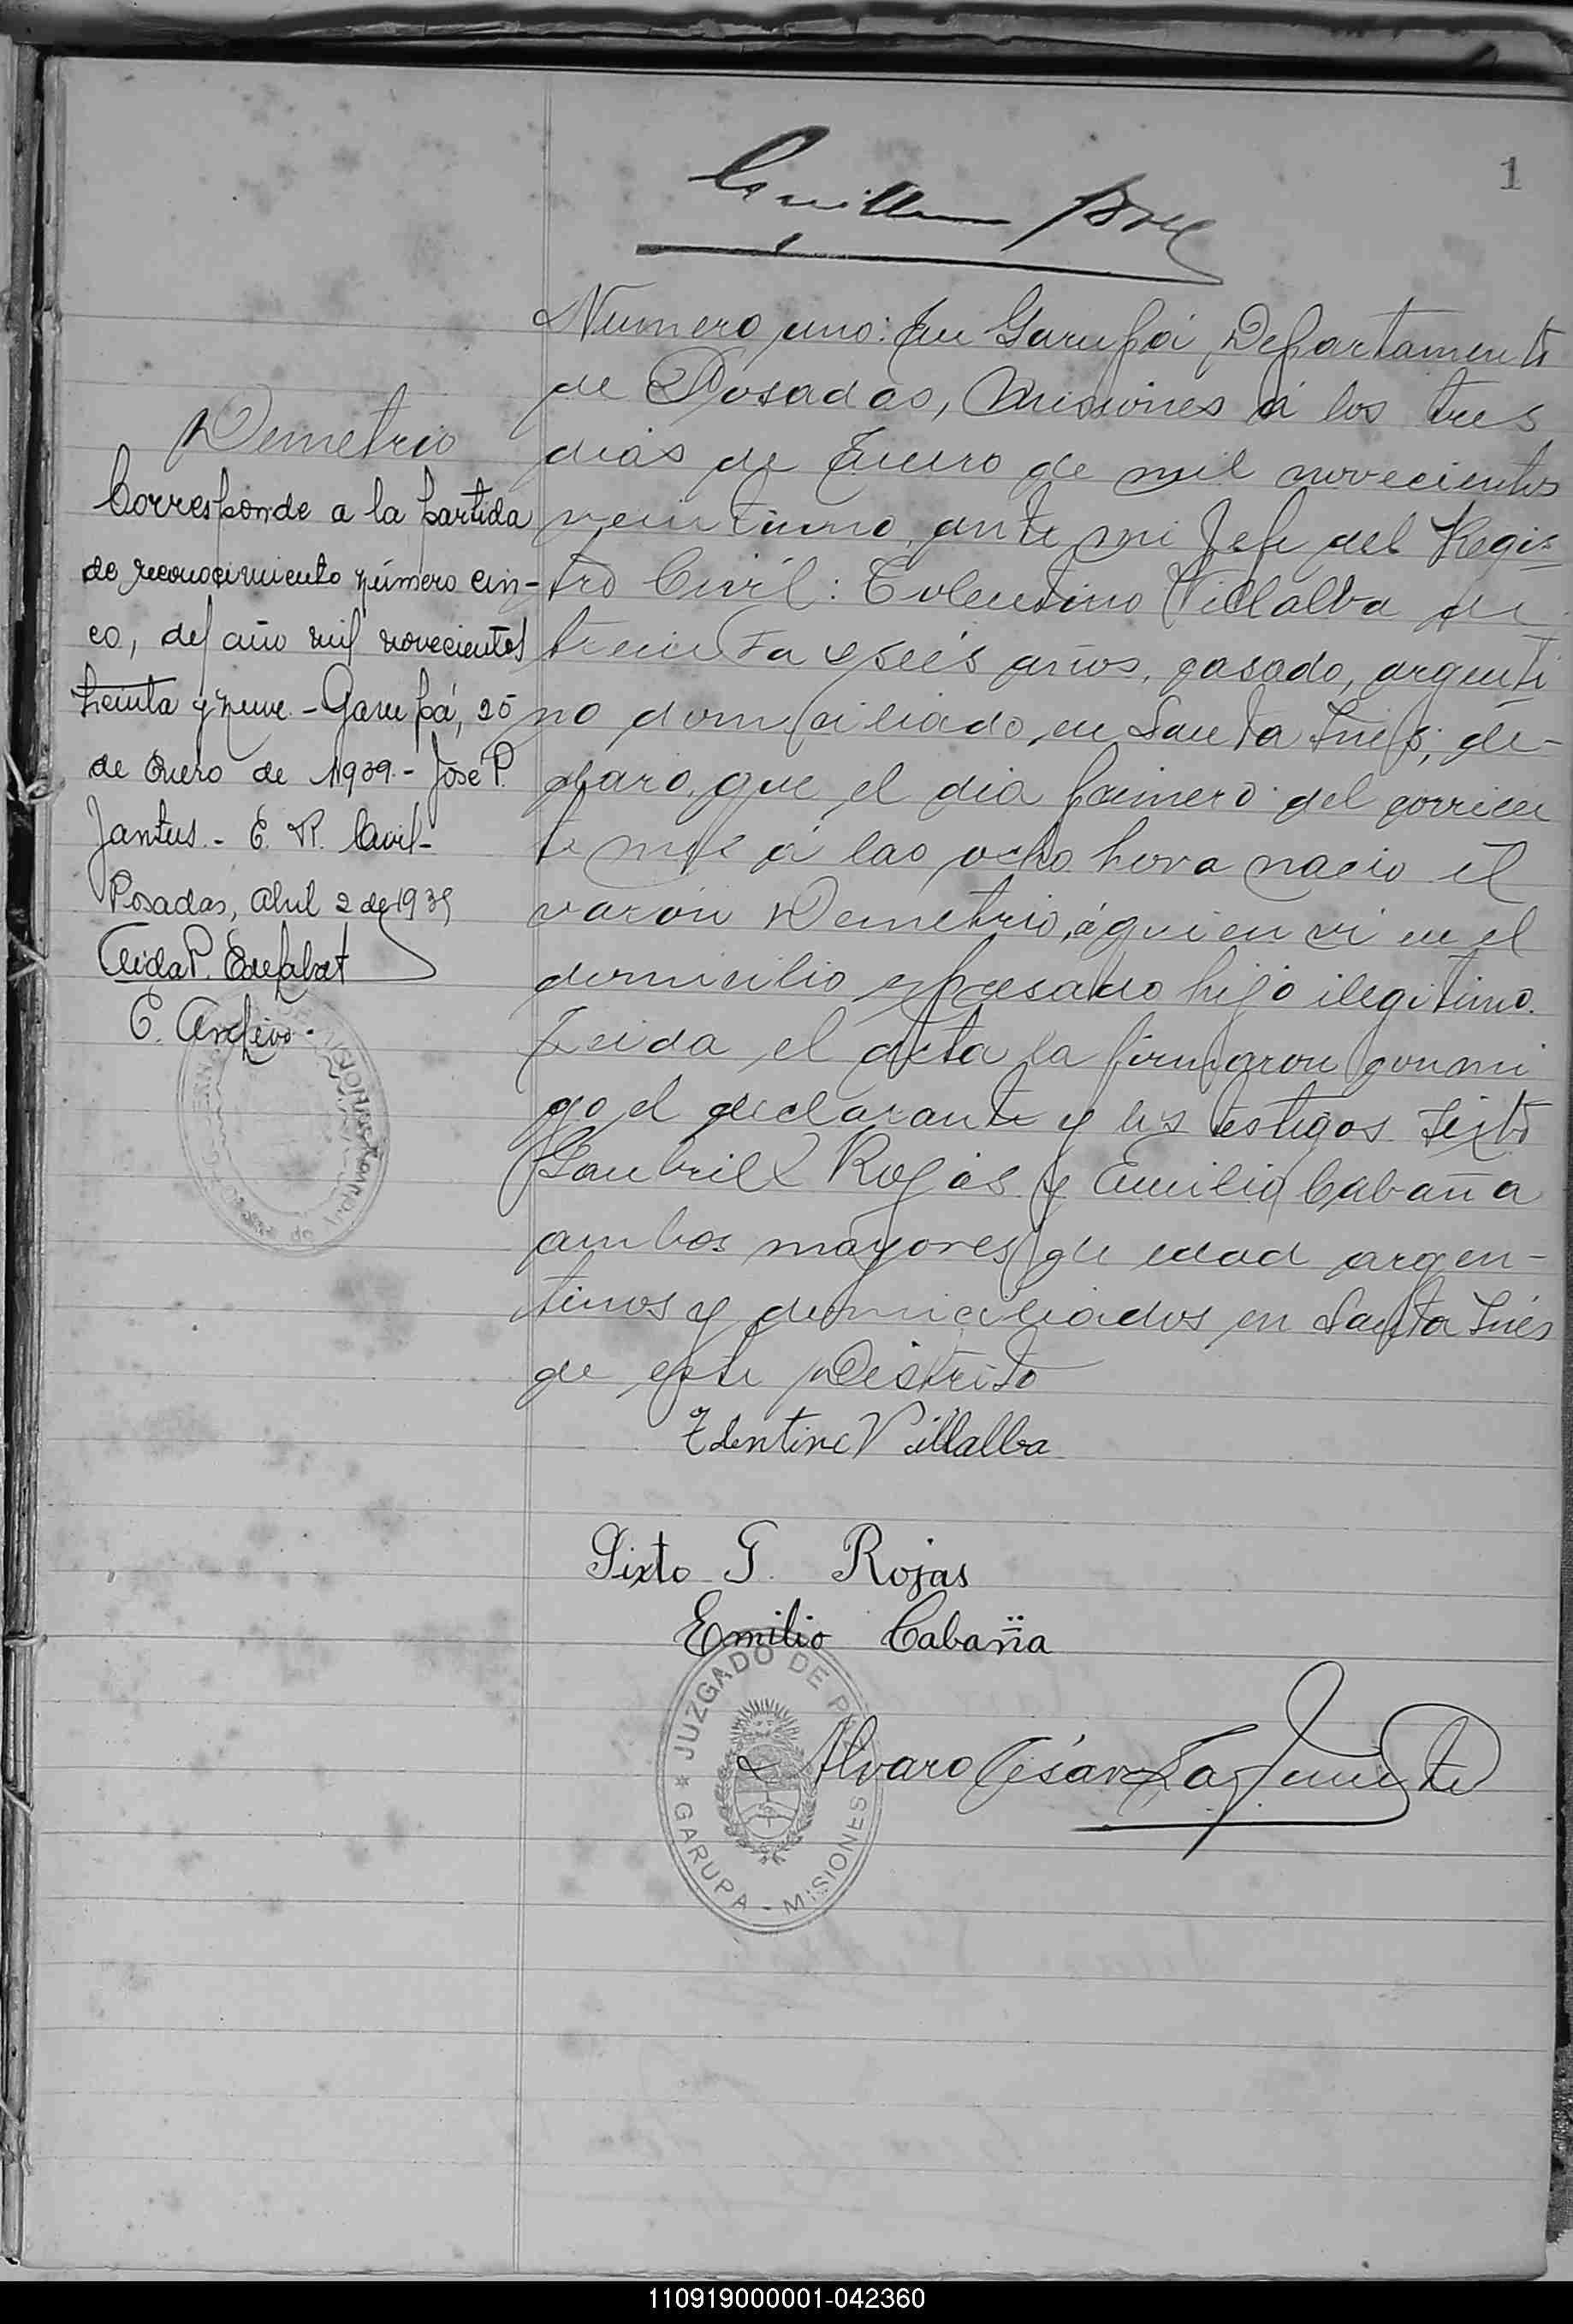 1
Numero uno: En Garupá Departamento
de Posadas, Misiones á los tres
dias de Enero de mil novecientos
veintiuno, ante mi Jefe del Regis-
tro Civil: Tolentino Villalba de
treinta y seis años, casado, argenti
no domiciliado en Santa Inés, de-
claro, que el dia primero del corrien
te mes á las ocho hora nacio el
varon Demetrio, á quien vi en el
domicilio expresado hijo ilegitimo.
Leida el acta la firmaron conmi
go el declarante y los testigos Sixto
Gabriel Rojas y Emilio Cabaña
ambos mayores de edad argen-
tinos y domiciliados en Santa Inés
de este Distrito
Tolentino Villalba
Sixto G. Rojas
Emilio Cabaña
Alvaro César Lafuente
JUZGADO DE PAZ
GARUPA - MISIONES
Demetrio
Corresponde a la partida
de reconocimiento número cin-
co, del año mil novecientos
treinta y nueve. - Garupá, 25
de Enero de 1939. - José P.
Jantus. - E. R. Civil-
Posadas, Abril 2 de 1939
E. Archivo.
110919000001-042360